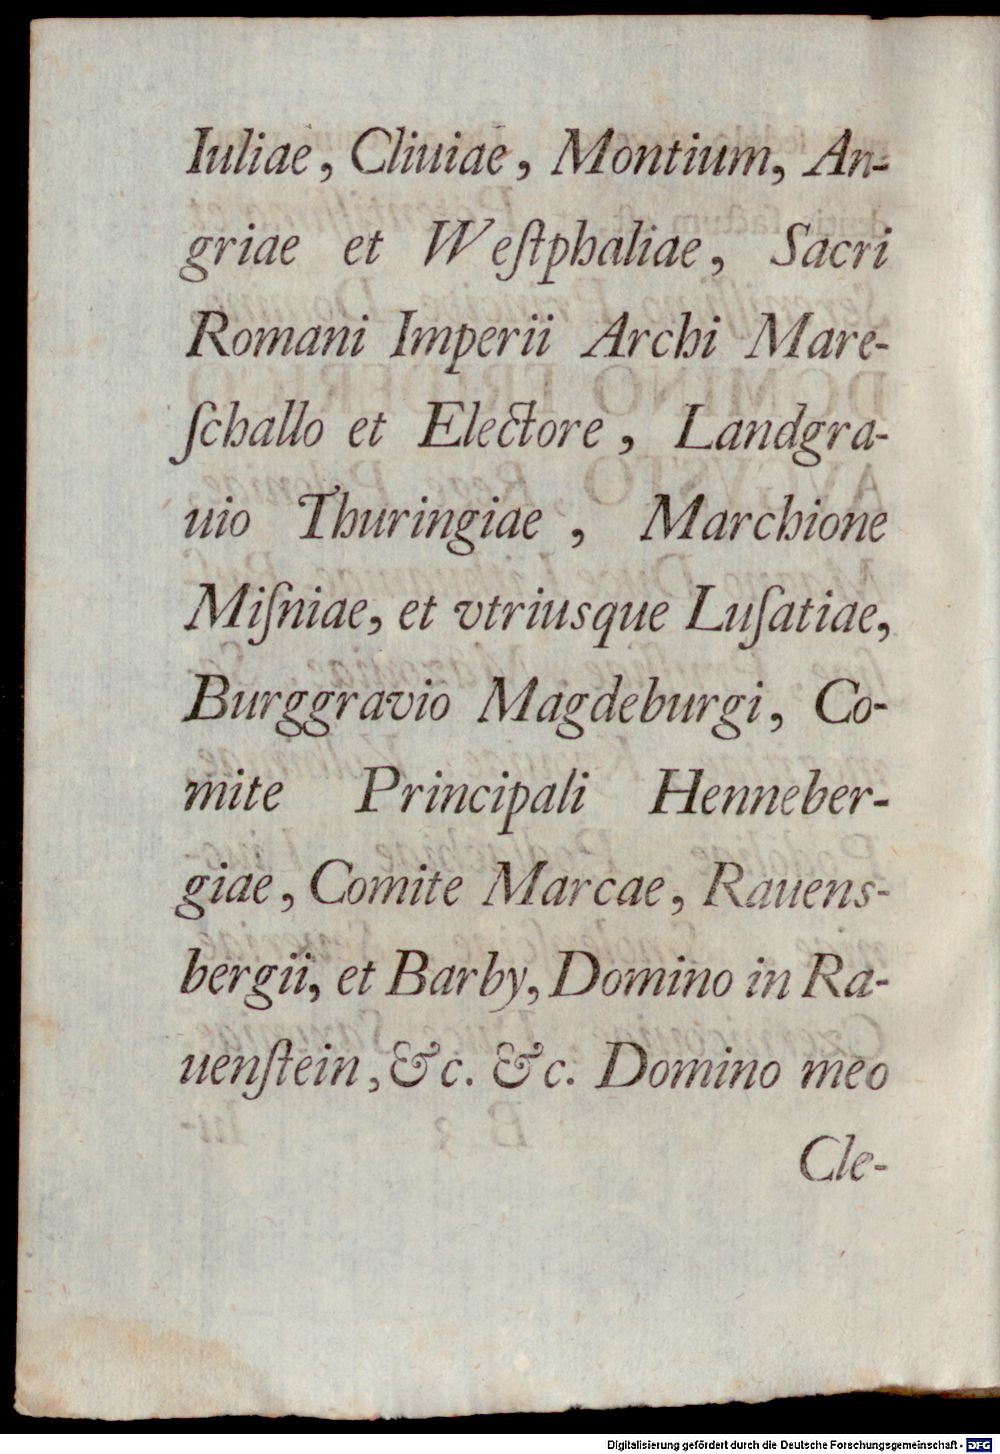 Iuliae, Cliuiae, Montium, An-
griae et Weſtphaliae, Sacri
Romani Imperii Archi Mare-
ſchallo et Electore, Landgra-
uio Thuringiae, Marchione
Miſniae, et vtriusque Luſatiae,
Burggravio Magdeburgi, Co-
mite Principali Henneber-
giae, Comite Marcae, Rauens-
bergii, et Barby, Domino in Ra-
uenſtein, &c. &c. Domino meo
Cle-
Digitalisierung gefördert durch die Deutsche Forschungsgemeinschaft - DFG